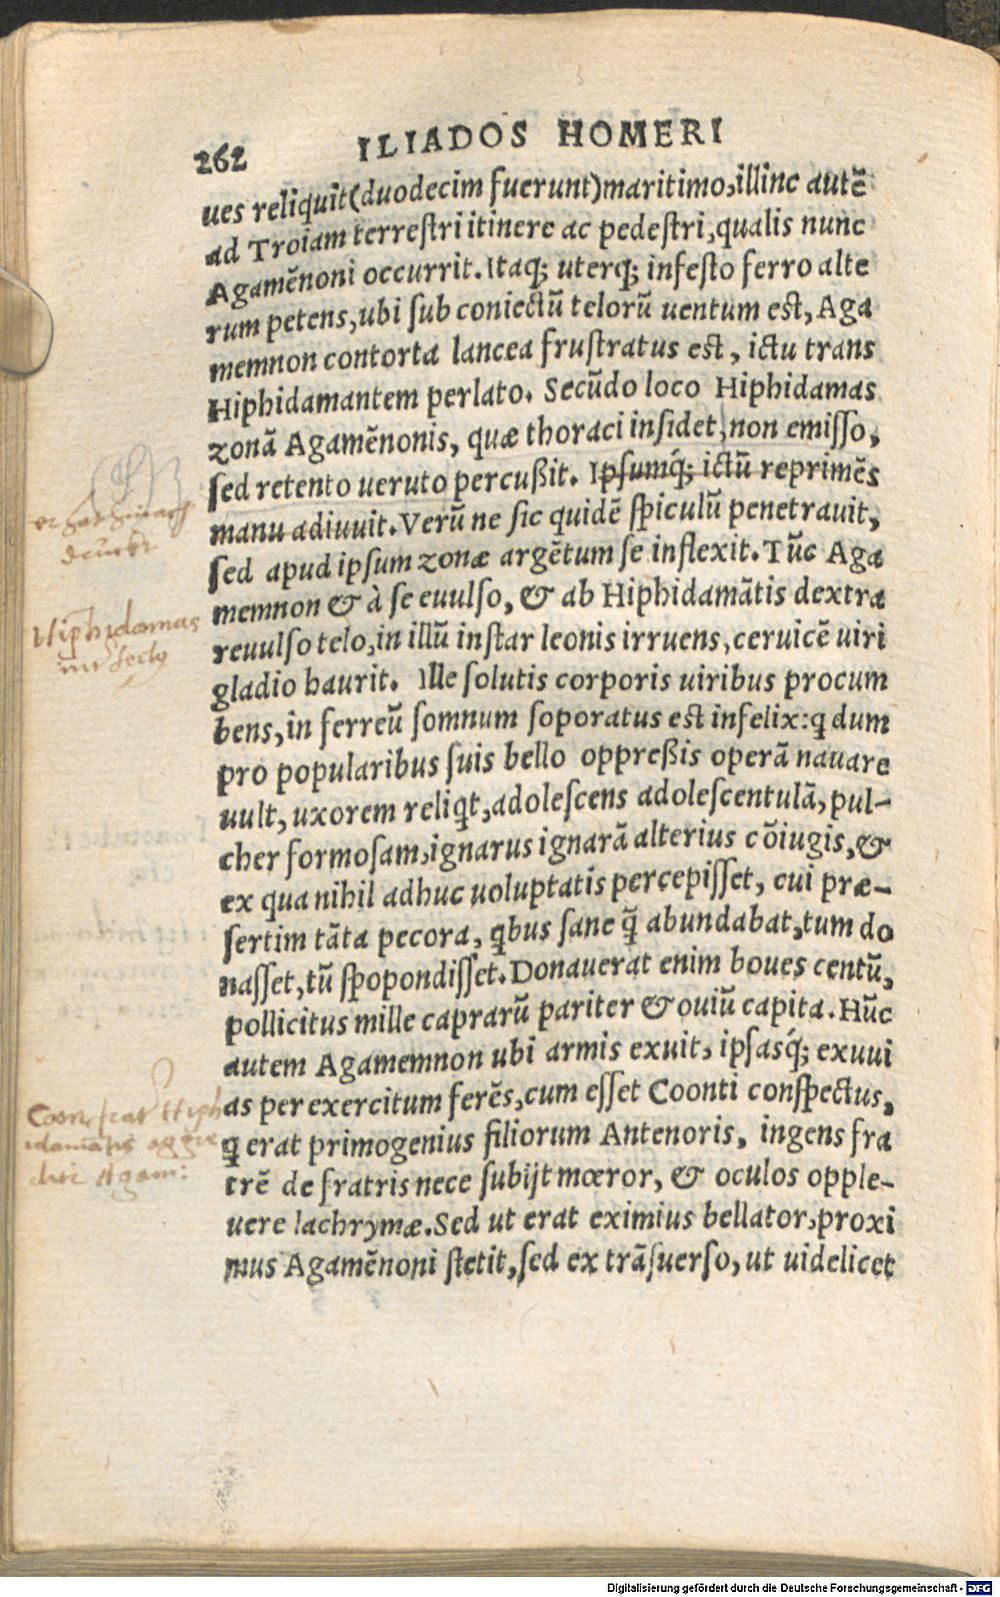 262 ILIADOS HOMERI
ues reliquit(duodecim fuerunt)maritimo,illinc autē
ad Troiam terrestri itinere ac pedestri,qualis nunc
Agamēnoni occurrit. Itaq; uterq; infesto ferro alte
rum petens,ubi sub coniectū telorū uentum est, Aga
memnon contorta lancea frustratus est, ictu trans
Hiphidamantem perlato. Secūdo loco Hiphidamas
zonā Agamēnonis, quæ thoraci insidet,non emisso,
sed retento ueruto percußit. Ipsumq́; ictū reprimēs
manu adiuuit. Verū ne sic quidē spiculū penetrauit,
sed apud ipsum zonæ argētum se inflexit. Tūc Aga
memnon & à se euulso, & ab Hiphidamātis dextra
reuulso telo,in illū instar leonis irruens,ceruicē uiri
gladio haurit. Ille solutis corporis uiribus procum
bens,in ferreū somnum soporatus est infelix:q dum
pro popularibus suis bello oppreßis operā nauare
uult, uxorem reliqt,adolescens adolescentulā, pul-
cher formosam,ignarus ignarā alterius cōiugis,&
ex qua nihil adhuc uoluptatis percepisset, cui præ-
sertim tāta pecora, qbus sane q̄ abundabat,tum do
nasset,tū spopondisset. Donauerat enim boues centū,
pollicitus mille caprarū pariter & ouiū capita. Hūc
autem Agamemnon ubi armis exuit, ipsasq́; exuui
as per exercitum ferēs,cum esset Coonti conspectus,
q erat primogenius filiorum Antenoris, ingens fra
trē de fratris nece subijt mœror, & oculos opple-
uere lachrymæ. Sed ut erat eximius bellator,proxi
mus Agamēnoni stetit,sed ex trāsuerso, ut uidelicet
Hiphidamas
Coon frat Hiph
idamātis aggre
Agam:
Digitalisierung gefördert durch die Deutsche Forschungsgemeinschaft - DFG